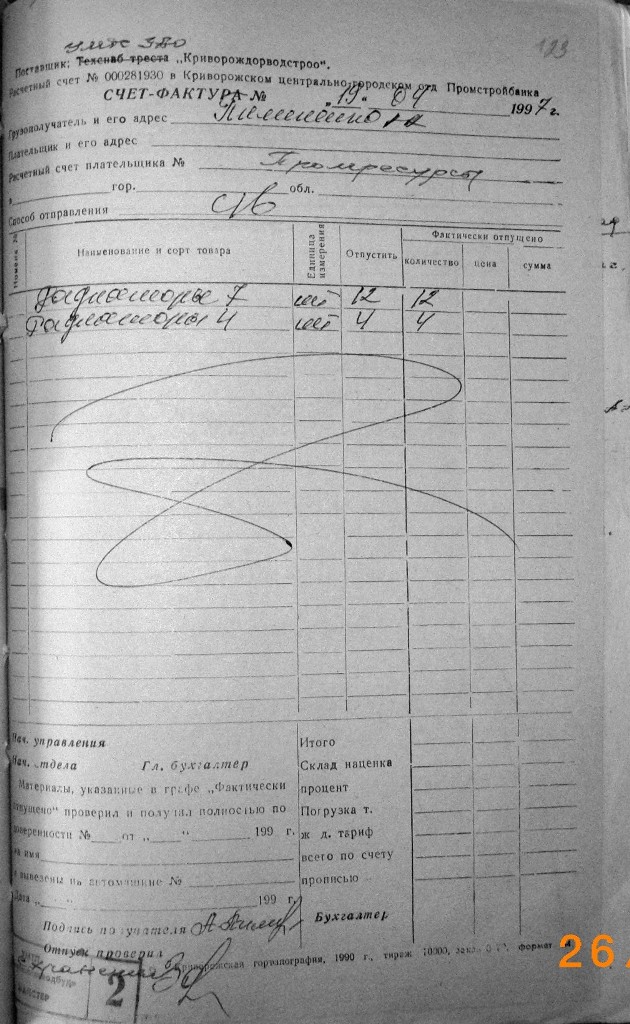 УМТС ЗВО
193
Поставщик: Техснаб треста „Криворождорводстроо“.
Расчетный счет № 000281930 в Криворожском центрально-городском отд Промстройбанка
СЧЕТ-ФАКТУРА № „19“ 04 1997 г.
Грузополучатель и его адрес
Плательщик и его адрес
Расчетный счет плательщика № Промресурсы
в гор. обл.
Способ отправления с/в
Наименование и сорт товара Единица измерения Отпустить Фактически отпущено
количество цена сумма
Радиаторы 7 шт 12 12
Радиаторы 4 шт 4 4
Нач. управления Итого
Нач. отдела Гл. бухгалтер Склад наценка
Материалы, указанные в графе „Фактически процент
отпущено“ проверил и получил полностью по Погрузка т.
доверенности № от „ “ 199 г. ж д. тариф
на имя всего по счету
и вывезены на автомашине № прописью
Дата „ “ 199 г.
Подпись получателя Бухгалтер
Отпуск проверил
Криворожская горизография, 1990 г., тираж 10000, формат
2
26.